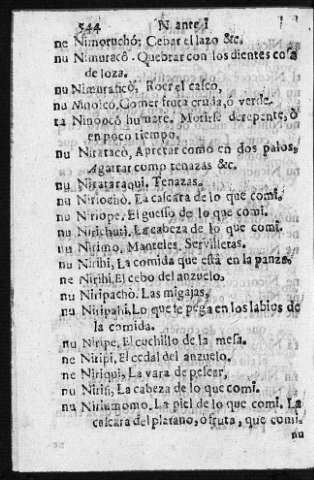 544 N ante I
ne Nimoruchó; Cebar el lazo &c.
nu Nimuracó. Quebrar con los dientes cosa
de loza.
nu Nimurasicó, Roer el casco,
nu Ninoicó, Comer fruta cruda, ò verde.
ta Morirse derepente, ò
en poco tiempo,
nu Niratacò, Apretar como en dos palos,
Agarrar como tenazas &c.
nu Nirataraqui. Tenazas.
nu Niriochò, La cascara de lo que comi.
nu Niriope, El guesso de lo que comi.
nu Nirichuti, La cabeza de lo que comi.
nu Nirimo, Manteles, Servilletas.
nu Niribi, La comida que està en la panza.
ne Niribi, El cebo del anzuelo.
nu Niripachò. Las migajas,
nu Niripahi, Lo que se pega en los labios de
la comida.
nu Niripe, El cuchillo de la mesa.
ne Niripi, El cedal del anzuelo.
ne Niriqui, La vara de pescar,
nu Niriti, La cabeza de lo que comi.
nu Niriumomo. La piel de lo que comi. La
cascara del platano, ò fruta, que comi.
nu